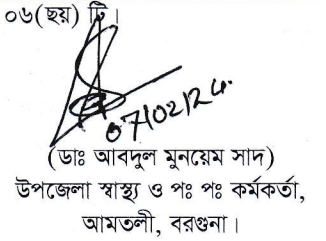 ০৬(ছয়) টি।
07/02/24.
(ডাঃ আবদুল মুনয়েম সাদ)
উপজেলা স্বাস্থ্য ও পঃ পঃ কর্মকর্তা,
আমতলী, বরগুনা।